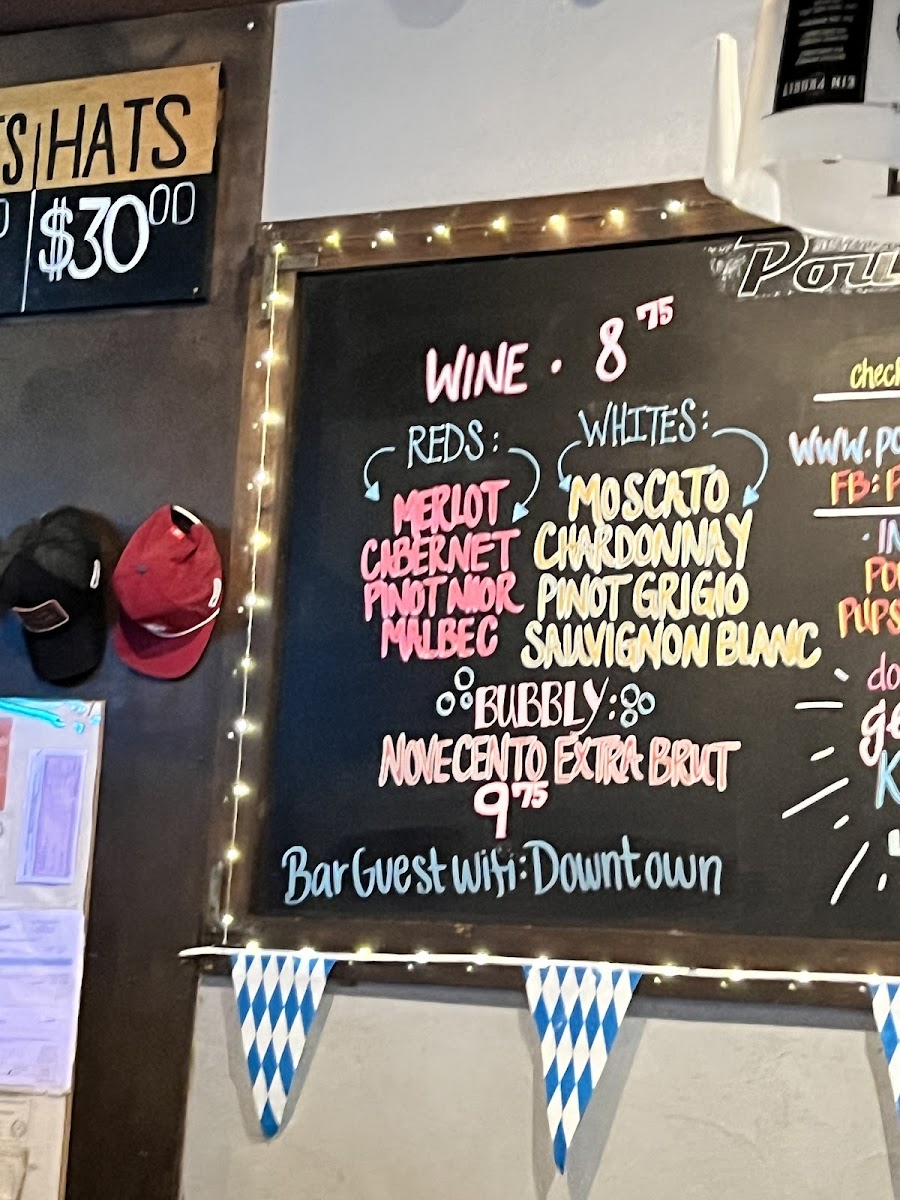 HATS
$30 00
WINE · 8 75
REDS:
MERLOT
CABERNET
PINOT NIOR
MALBEC
WHITES:
MOSCATO
CHARDONNAY
PINOT GRIGIO
SAUVIGNON BLANC
BUBBLY:
NOVECENTO EXTRA BRUT
9 75
Bar Guest Wifi: Downtown
WWW.PO
FB: P
PUPS